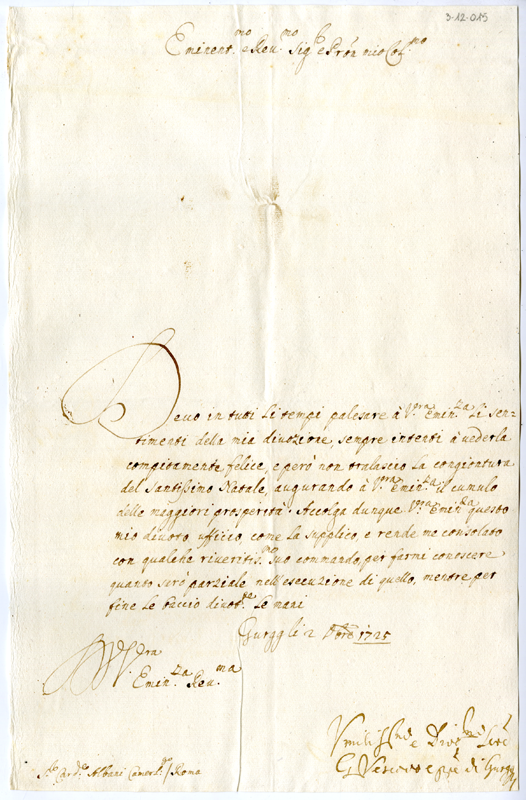 3-12-015
Eminent.mo e Reu.mo Sig.e e Prõn mio Col.mo
Deuo in tutti li tempi palesare à V.ra Emin.za li sen-
timenti della mia diuozione, sempre intenti à vederla
compitamente felice, e però non tralascio la congiontura
del Santissimo Natale, augurando à V.ra Emin.za il cumulo
delle maggiori prosperità. Accolga dunque V.ra Emin.za questo
mio diuoto ufficio come la supplico, e rende me consolato
con qualche riueritis.mo suo commando, per farmi conoscere
quanto serò parziale nell'esecuzione di quello, mentre per
fine le baccio diuot.te le mani
Gurgg li 2 Xbre 1725
D. V.ra
Emin.za Reu.ma
Umiliss.mo e Diuo.mo Seru.
G Vescouo e di Gurgg
Card.e Albani Camerl.go / Roma